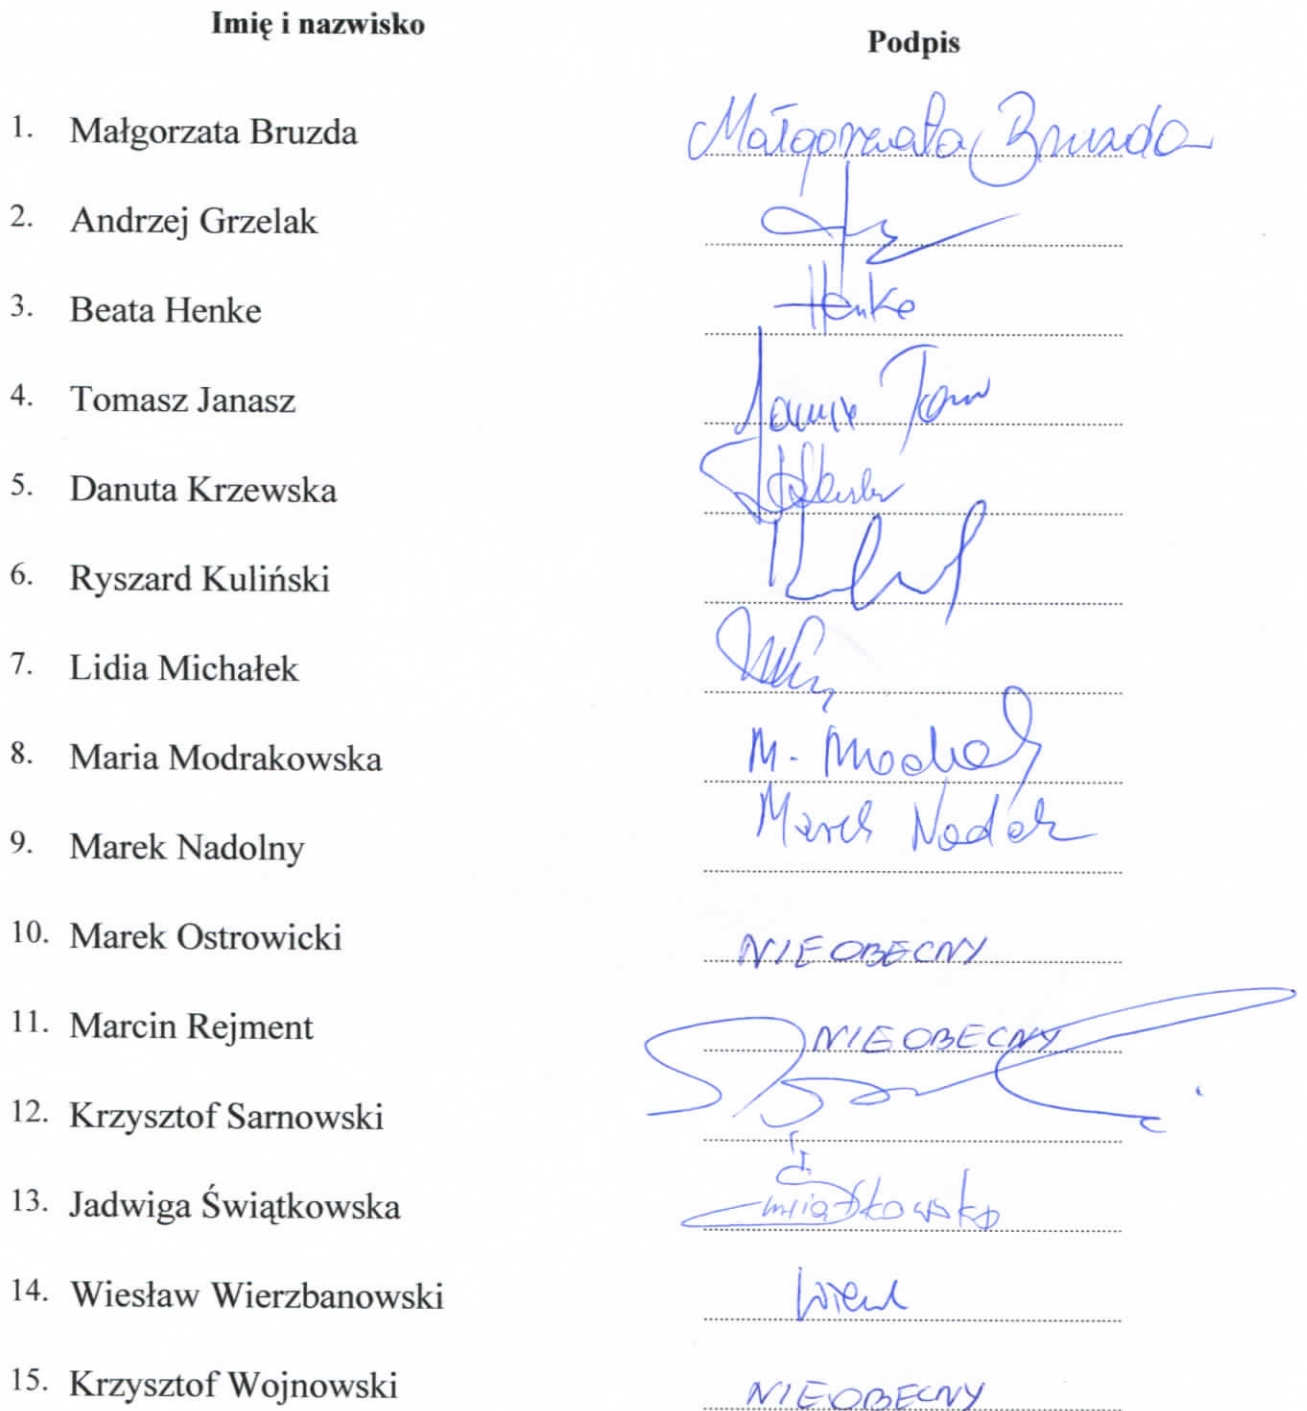 Imię i nazwisko
Podpis
1. Małgorzata Bruzda Małgorzata Bruzda
2. Andrzej Grzelak
3. Beata Henke Henke
4. Tomasz Janasz
5. Danuta Krzewska
6. Ryszard Kuliński
7. Lidia Michałek
8. Maria Modrakowska M.
9. Marek Nadolny Marek
10. Marek Ostrowicki NIEOBECNY
11. Marcin Rejment NIEOBECNY
12. Krzysztof Sarnowski
13. Jadwiga Świątkowska Świątkowska
14. Wiesław Wierzbanowski
15. Krzysztof Wojnowski NIEOBECNY